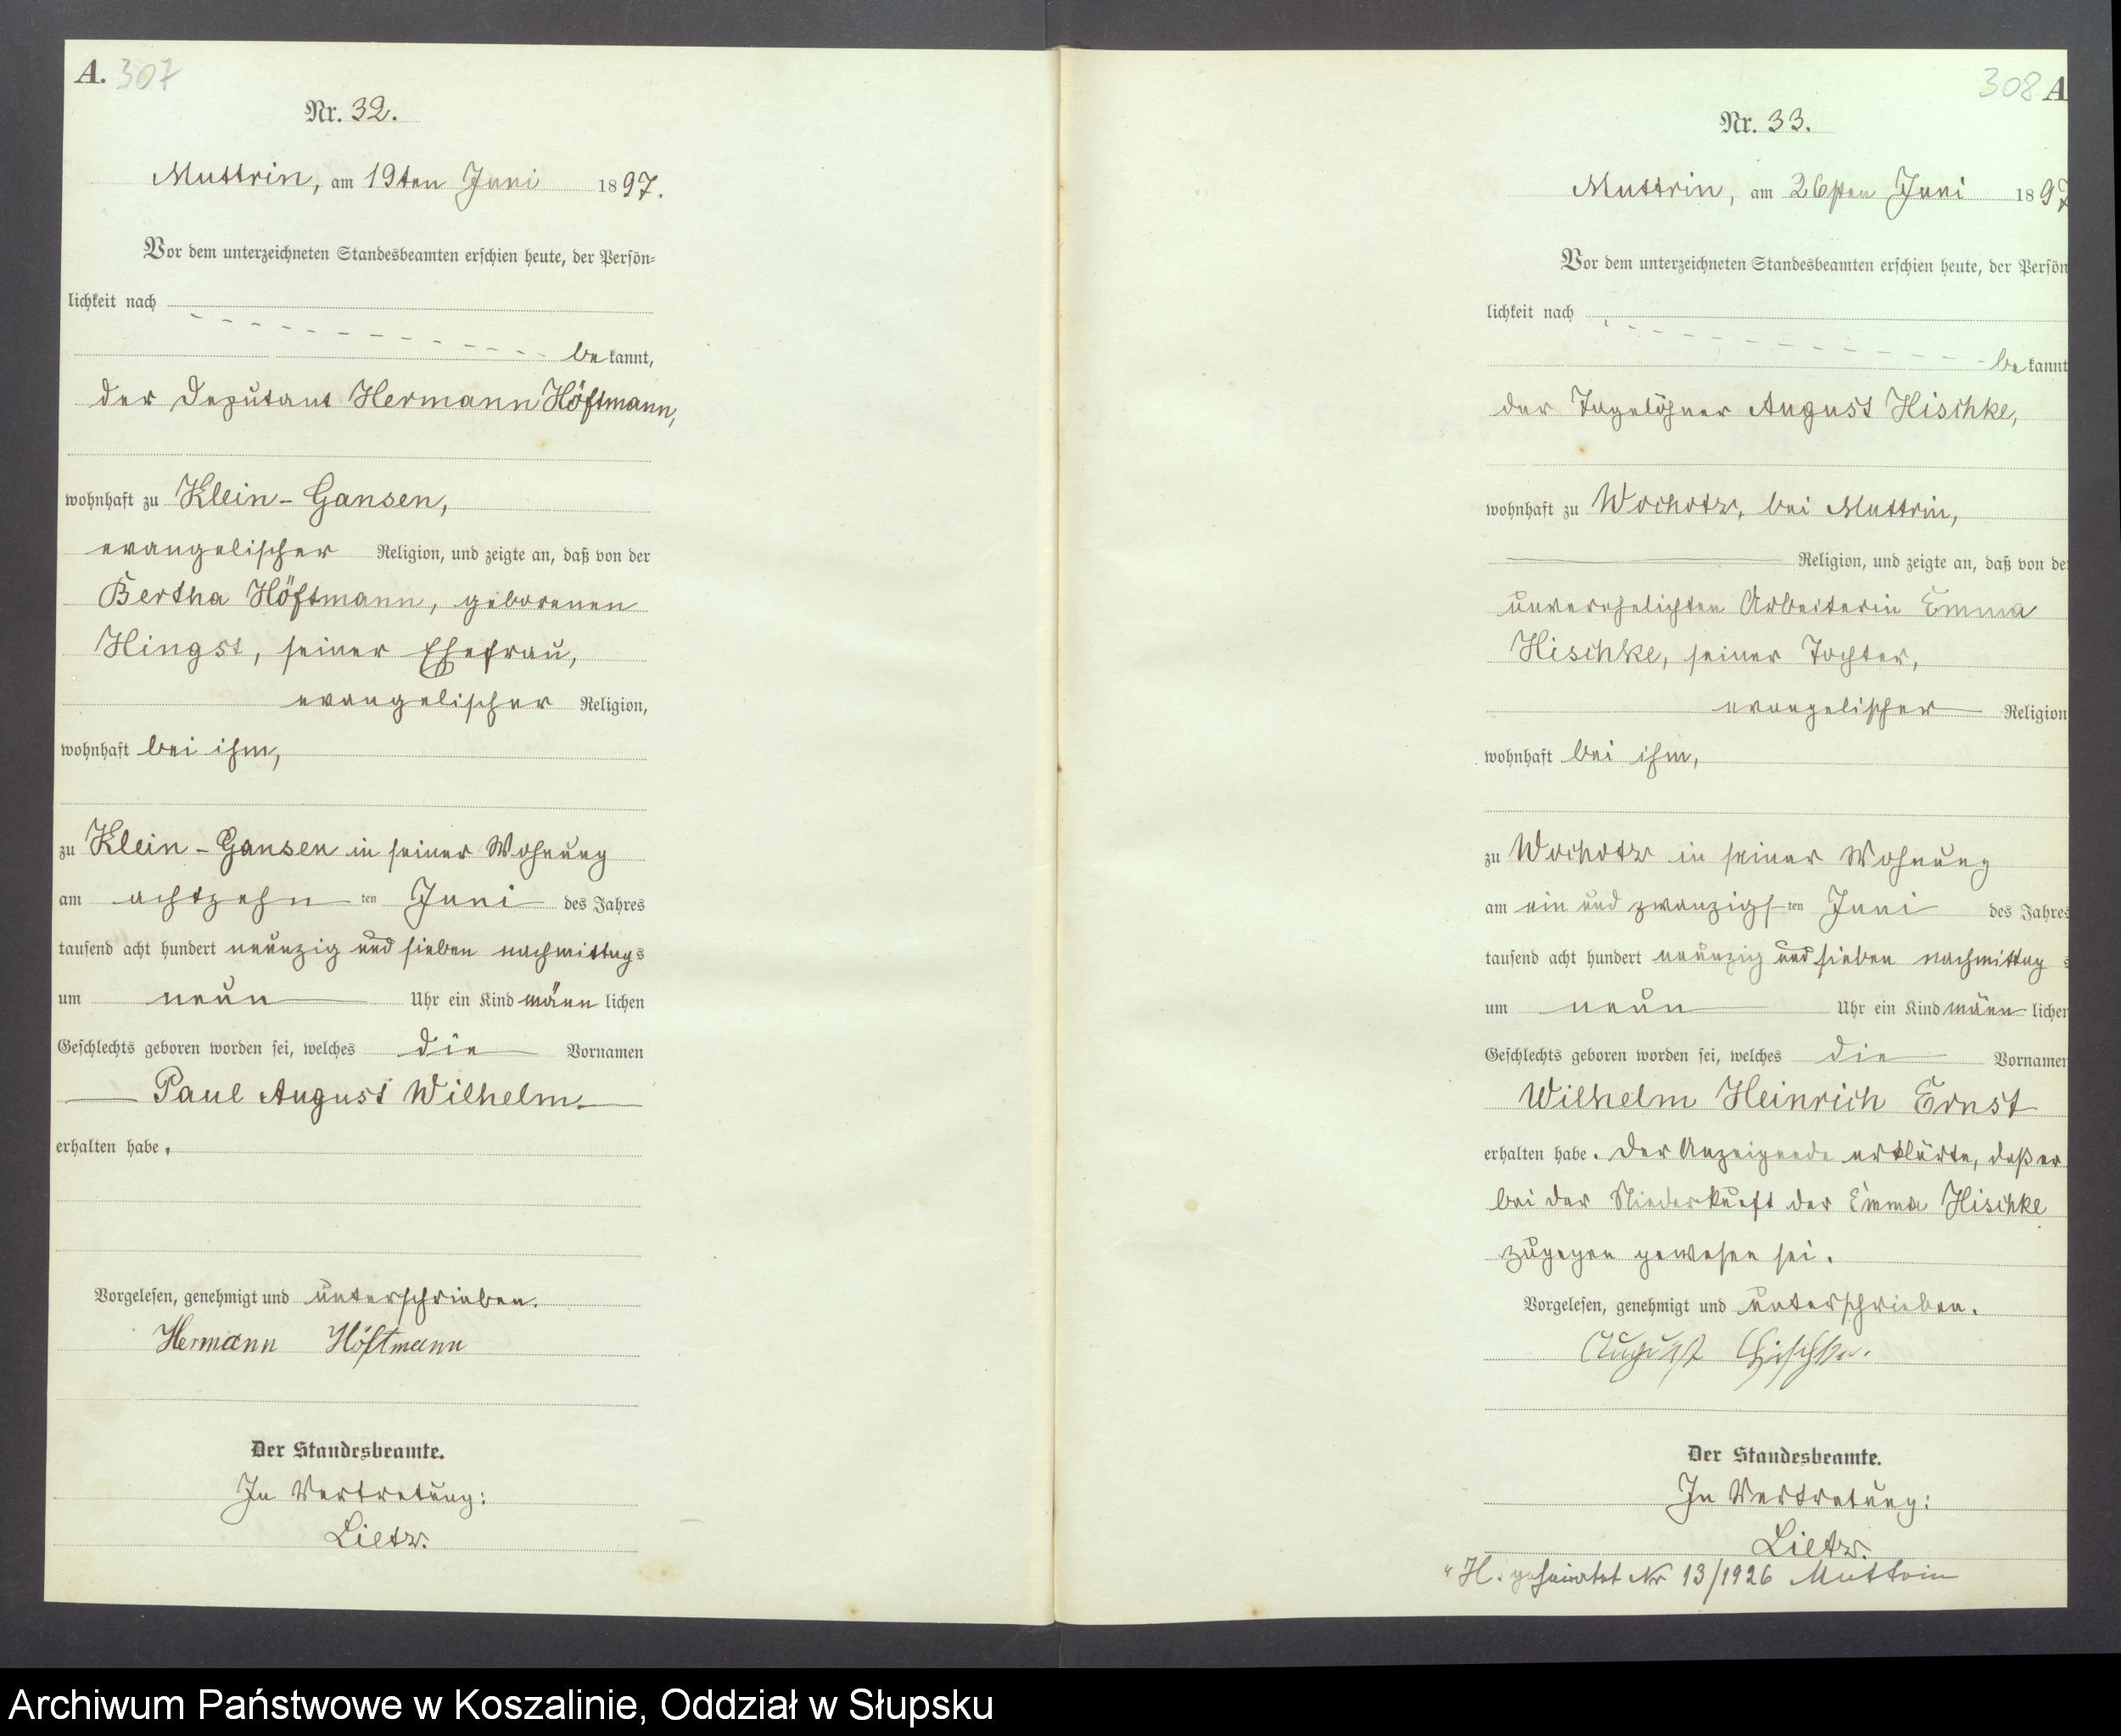 A. 307
Nr. 32.
Muttrin, am 19ten Juni 1897.
Vor dem unterzeichneten Standesbeamten erschien heute, der Persön-
lichkeit nach
be kannt,
der Deputant Hermann Höftmann,
wohnhaft zu Klein-Gansen,
evangelischer Religion, und zeigte an, daß von der
Bertha Höftmann, geborenen
Hingst, seiner Ehefrau,
evangelischer Religion,
wohnhaft bei ihm,
zu Klein-Gansen in seiner Wohnung
am achtzehn ten Juni des Jahres
tausend acht hundert neunzig und sieben nachmittags
um neun Uhr ein Kind männ lichen
Geschlechts geboren worden sei, welches die Vornamen
Paul August Wilhelm
erhalten habe.
Vorgelesen, genehmigt und unterschrieben.
Hermann Höftmann
Der Standesbeamte.
In Vertretung:
Lietz.
308 A
Nr. 33.
Muttrin, am 26sten Juni 1897
Vor dem unterzeichneten Standesbeamten erschien heute, der Persön
lichkeit nach
be kannt
der Tagelöhner August Hischke,
wohnhaft zu Wochotz, bei Muttrin,
Religion, und zeigte an, daß von de
unverehelichten Arbeiterin Emma
Hischke, seiner Tochter,
evangelischer Religion
wohnhaft bei ihm,
zu Wochotz in seiner Wohnung
am ein und zwanzigs ten Juni des Jahres
tausend acht hundert neunzig und sieben nachmittag s
um neun Uhr ein Kind männ lichen
Geschlechts geboren worden sei, welches die Vornamen
Wilhelm Heinrich Ernst
erhalten habe. Der Anzeigende erklärte, daß er
bei der Niederkunft der Emma Hischke
zugegen gewesen sei.
Vorgelesen, genehmigt und unterschrieben.
August Hischke.
Der Standesbeamte.
In Vertretung:
Lietz.
" H. geheiratet Nr 13/1926 Muttrin
Archiwum Państwowe w Koszalinie, Oddział w Słupsku